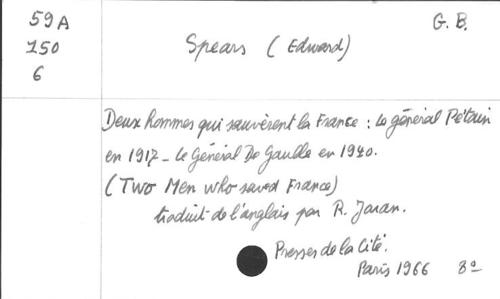 59A
150
6
G. B.
Spears ( Edward)
Deux hommes qui sauvèrent la France : Le général Pétain
en 1917 - Le Général De Gaulle en 1940.
( Two Men who saved France)
traduit de l'anglais par R. Jouan.
Presses de la Cité.
Paris 1966 8º